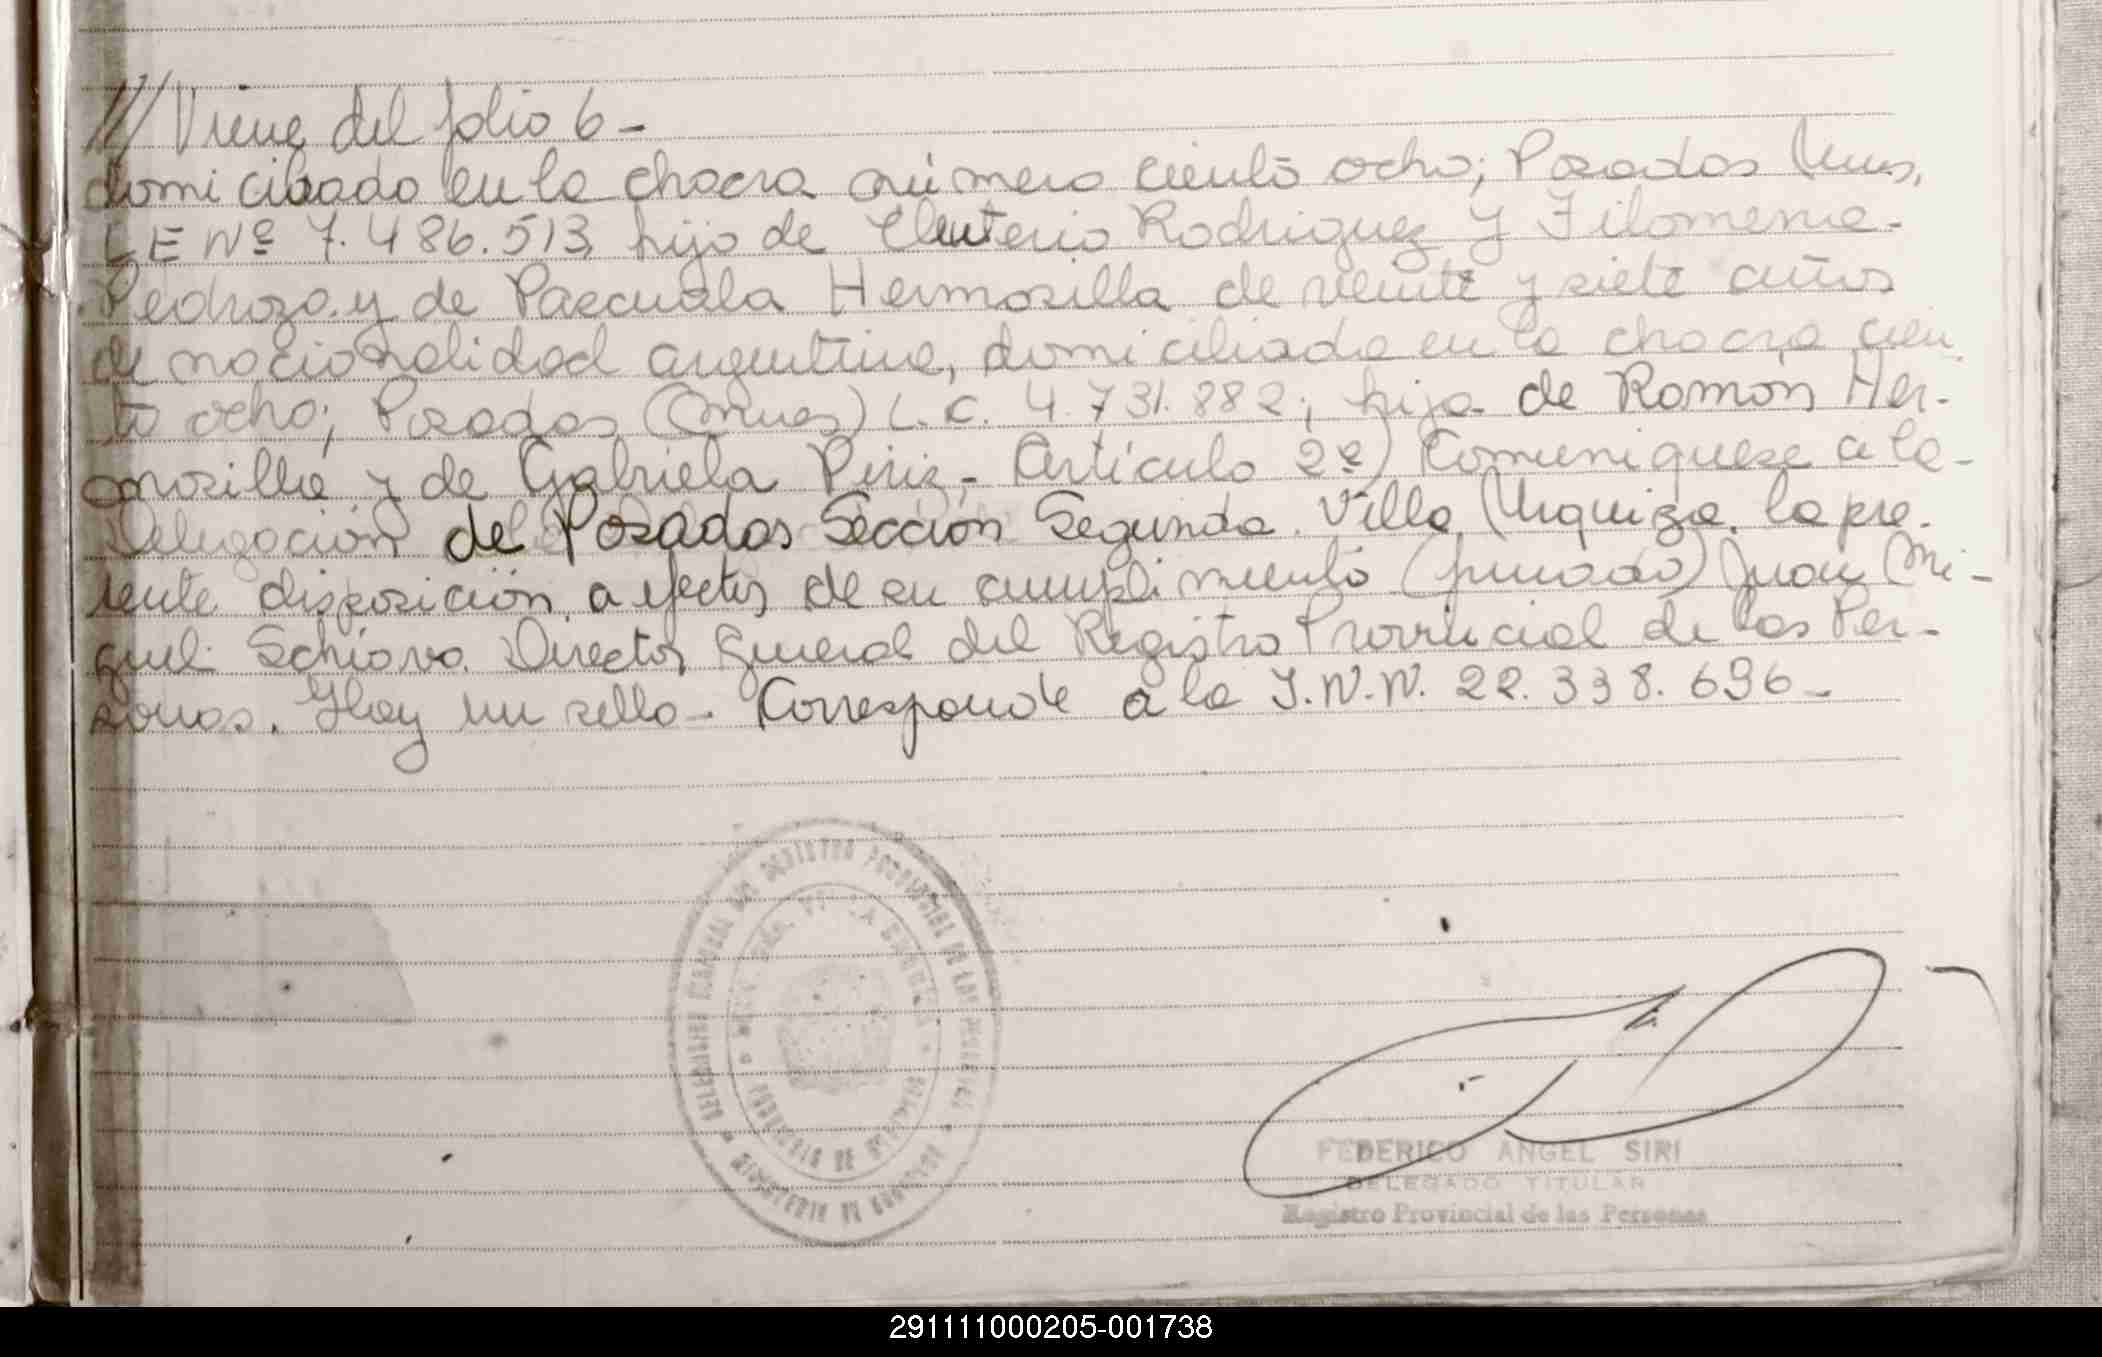 /// Viene del folio 6-
domiciliado en la chacra número ciento ocho; Posadas Mnes,
L E Nº 7.486.513, hijo de Eleuterio Rodriguez y Filomena-
Pedrozo. y de Pascuala Hermosilla de veinte y siete años
de nacionalidad argentina, domiciliada en la chacra cien
to ocho; Posadas (Mnes) L. C. 4.731.882; hija de Ramón Her-
mosilla y de Gabriela Piriz.- Artículo 2º) Comuniquese a la-
Delegación de Posadas Sección Segunda. Villa Urquiza. la pre-
sente disposición a efectos de su cumplimiento (firmado) Juan Mi-
guel Schiavo. Director General del Registro Provincial de las Per-
sonas. Hay un sello-. Corresponde a la I.N.N. 22.338.696-
REGISTRO PROVINCIAL DE LAS PERSONAS
VILLA URQUIZA
PROVINCIA DE MISIONES
MINISTERIO DE GOBIERNO
FEDERICO ANGEL SIRI
DELEGADO TITULAR
Registro Provincial de las Personas
291111000205-001738